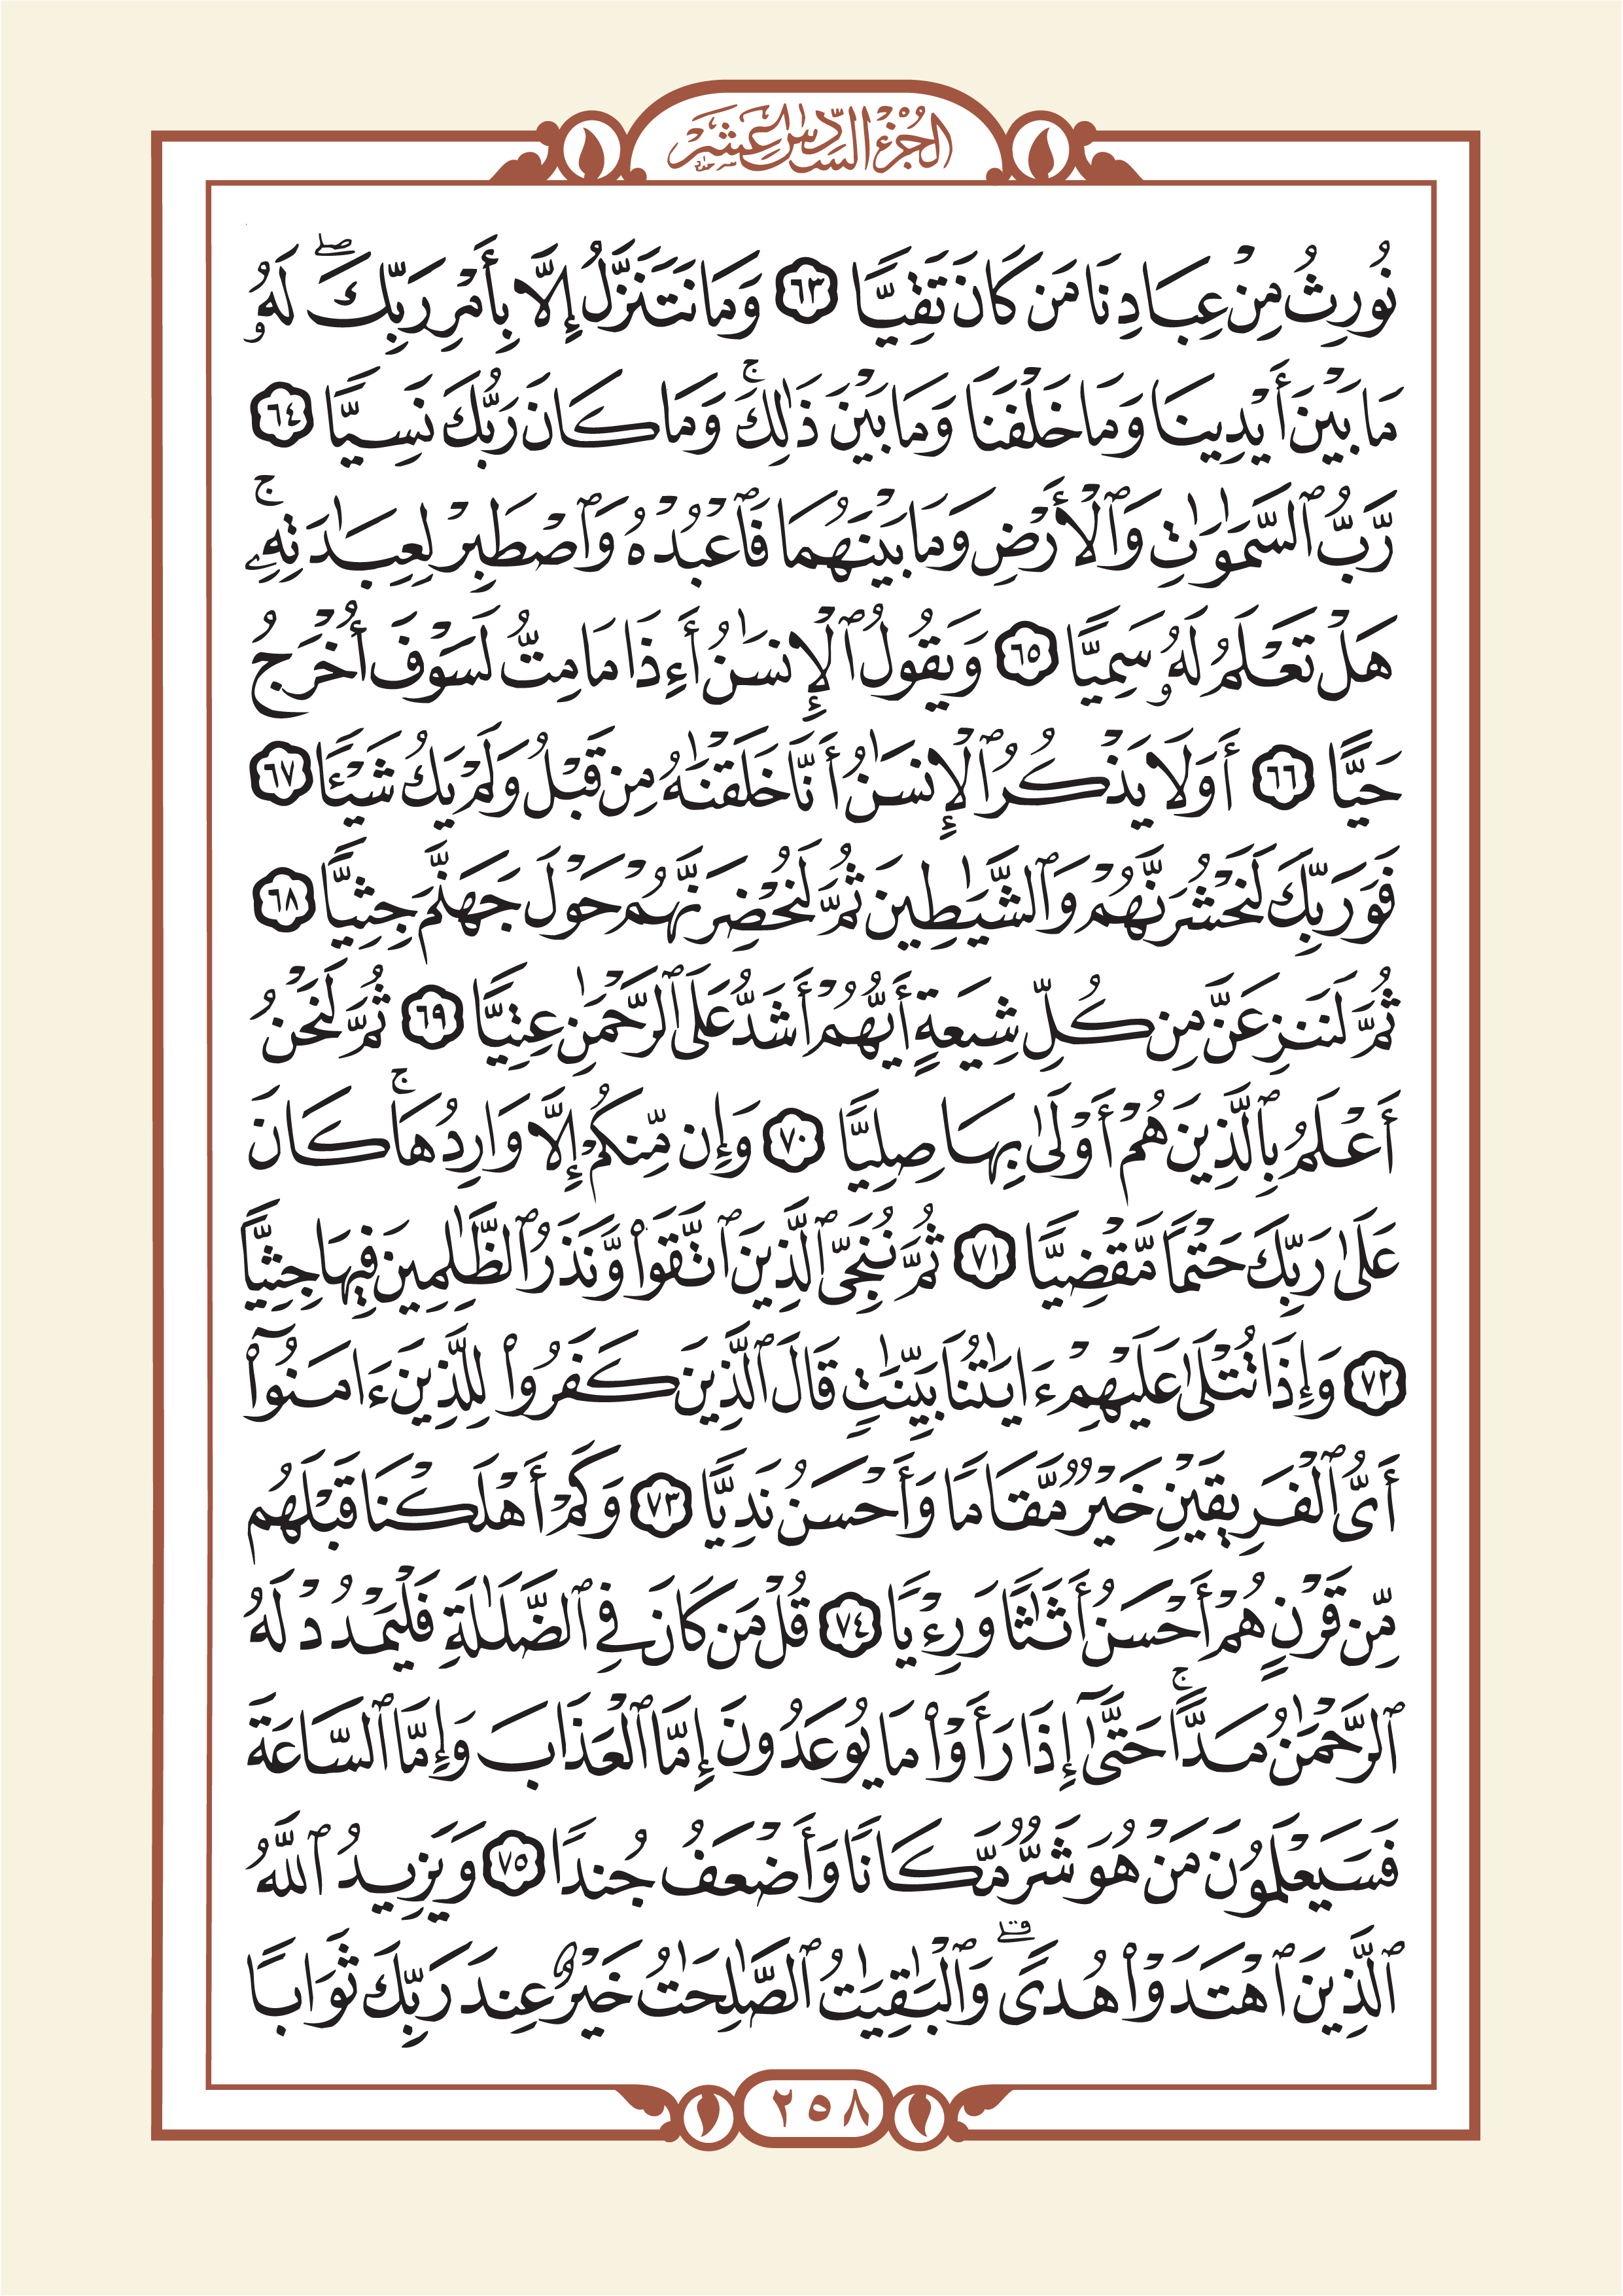 الجُزْءُ السَّادِسَ عَشَرَ
نُورِثُ مِنْ عِبَادِنَا مَن كَانَ تَقِيًّا ٦٣ وَمَا نَتَنَزَّلُ إِلَّا بِأَمْرِ رَبِّكَ ۖ لَهُۥ
مَا بَيْنَ أَيْدِينَا وَمَا خَلْفَنَا وَمَا بَيْنَ ذَٰلِكَ ۚ وَمَا كَانَ رَبُّكَ نَسِيًّا ٦٤
رَّبُّ ٱلسَّمَٰوَٰتِ وَٱلْأَرْضِ وَمَا بَيْنَهُمَا فَٱعْبُدْهُ وَٱصْطَبِرْ لِعِبَٰدَتِهِۦ ۚ
هَلْ تَعْلَمُ لَهُۥ سَمِيًّا ٦٥ وَيَقُولُ ٱلْإِنسَٰنُ أَءِذَا مَا مِتُّ لَسَوْفَ أُخْرَجُ
حَيًّا ٦٦ أَوَلَا يَذْكُرُ ٱلْإِنسَٰنُ أَنَّا خَلَقْنَٰهُ مِن قَبْلُ وَلَمْ يَكُ شَيْـًٔا ٦٧
فَوَرَبِّكَ لَنَحْشُرَنَّهُمْ وَٱلشَّيَٰطِينَ ثُمَّ لَنُحْضِرَنَّهُمْ حَوْلَ جَهَنَّمَ جِثِيًّا ٦٨
ثُمَّ لَنَنزِعَنَّ مِن كُلِّ شِيعَةٍ أَيُّهُمْ أَشَدُّ عَلَى ٱلرَّحْمَٰنِ عِتِيًّا ٦٩ ثُمَّ لَنَحْنُ
أَعْلَمُ بِٱلَّذِينَ هُمْ أَوْلَىٰ بِهَا صِلِيًّا ٧٠ وَإِن مِّنكُمْ إِلَّا وَارِدُهَا ۚ كَانَ
عَلَىٰ رَبِّكَ حَتْمًا مَّقْضِيًّا ٧١ ثُمَّ نُنَجِّى ٱلَّذِينَ ٱتَّقَوا۟ وَّنَذَرُ ٱلظَّٰلِمِينَ فِيهَا جِثِيًّا
٧٢ وَإِذَا تُتْلَىٰ عَلَيْهِمْ ءَايَٰتُنَا بَيِّنَٰتٍ قَالَ ٱلَّذِينَ كَفَرُوا۟ لِلَّذِينَ ءَامَنُوٓا۟
أَىُّ ٱلْفَرِيقَيْنِ خَيْرٌ مَّقَامًا وَأَحْسَنُ نَدِيًّا ٧٣ وَكَمْ أَهْلَكْنَا قَبْلَهُم
مِّن قَرْنٍ هُمْ أَحْسَنُ أَثَٰثًا وَرِءْيًا ٧٤ قُلْ مَن كَانَ فِى ٱلضَّلَٰلَةِ فَلْيَمْدُدْ لَهُ
ٱلرَّحْمَٰنُ مَدًّا ۚ حَتَّىٰٓ إِذَا رَأَوْا۟ مَا يُوعَدُونَ إِمَّا ٱلْعَذَابَ وَإِمَّا ٱلسَّاعَةَ
فَسَيَعْلَمُونَ مَنْ هُوَ شَرٌّ مَّكَانًا وَأَضْعَفُ جُندًا ٧٥ وَيَزِيدُ ٱللَّهُ
ٱلَّذِينَ ٱهْتَدَوْا۟ هُدًى ۗ وَٱلْبَٰقِيَٰتُ ٱلصَّٰلِحَٰتُ خَيْرٌ عِندَ رَبِّكَ ثَوَابًا
٢٥٨